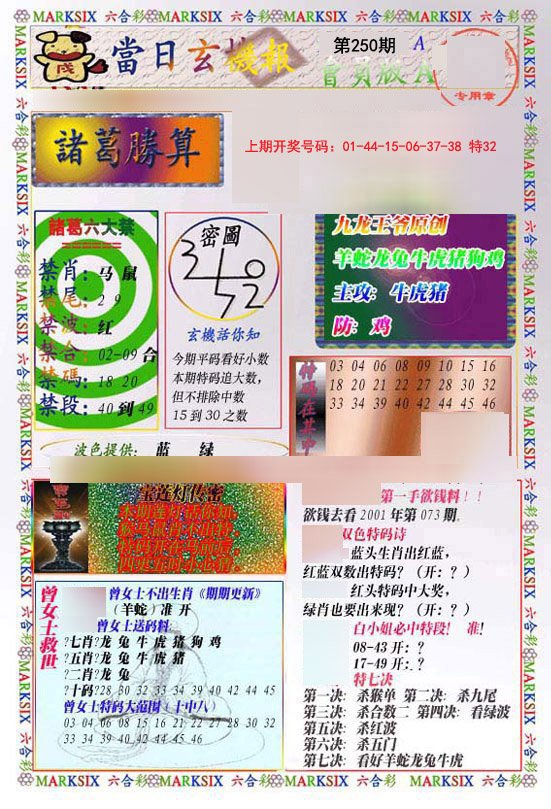 MARKSIX 六合彩 MARKSIX 六合彩 MARKSIX 六合彩 MARKSIX 六合彩 MARKSIX
當日玄機報
第250期
A
會員版A
专用章
諸葛勝算
上期开奖号码：01-44-15-06-37-38 特32
諸葛六大禁
禁肖：马 鼠
禁尾：2 9
禁波：红
禁合：02-09 合
禁碼：18 20
禁段：40 到 49
密圖
玄機話你知
今期平码看好小数
本期特码追大数，
但不排除中数
15 到 30 之数
九龙王爷原创
羊蛇龙兔牛虎猪狗鸡
主攻：牛虎猪
防：鸡
特码在其中
03 04 06 08 09 10 15 16
18 20 21 22 27 28 30 32
33 34 39 40 42 44 45 46
波色提供：蓝 绿
宝莲灯传密
曾女士救世
曾女士不出生肖《期期更新》
（羊蛇）准 开
曾女士送码料
?七肖?龙 兔 牛 虎 猪 狗 鸡
?五肖?龙 兔 牛 虎 猪
?二肖?龙 兔
?十码?28 30 32 33 34 39 40 42 44 45
曾女士特码大范围（十中八）
03 04 06 08 15 16 21 22 27 28 30 32
33 34 39 40 42 44 45 46
第一手欲钱料！！
欲钱去看 2001 年第 073 期.
双色特码诗
蓝头生肖出红蓝，
红蓝双数出特码？（开：？）
红头特码中大奖，
绿肖也要出来现？（开：？）
白小姐必中特段！ 准!
08-43 开：？
17-49 开：？
特七决
第一决：杀猴单 第二决：杀九尾
第三决：杀合数二 第四决：看绿波
第五决：杀红波
第六决：杀五门
第七决：看好羊蛇龙兔牛虎
MARKSIX 六合彩 MARKSIX 六合彩 MARKSIX 六合彩 MARKSIX 六合彩 MARKSIX